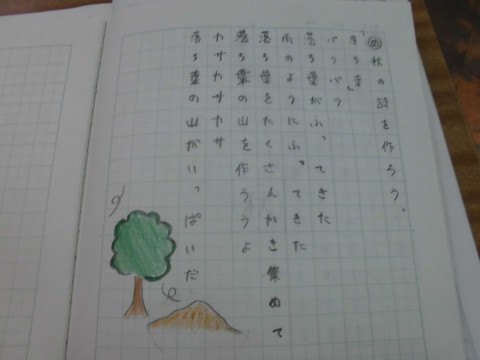 め秋の詩を作ろう。
「落ち葉」
パラパラ
落ち葉がふってきた
雨のようにふってきた
落ち葉をたくさんかき集めて
落ち葉の山を作ろうよ
カサカサカサ
落ち葉の山がいっぱいだ